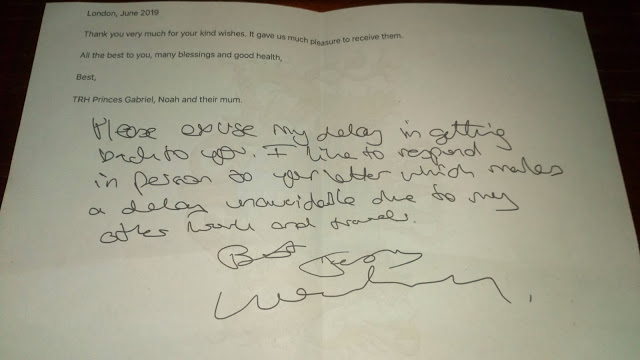 London, June 2019
Thank you very much for your kind wishes. It gave us much pleasure to receive them.
All the best to you, many blessings and good health,
Best,
TRH Princes Gabriel, Noah and their mum.
Please excuse my delay in getting
back to you. I like to respond
in person to your letter which makes
a delay unavoidable due to my
other work and travels.
Best